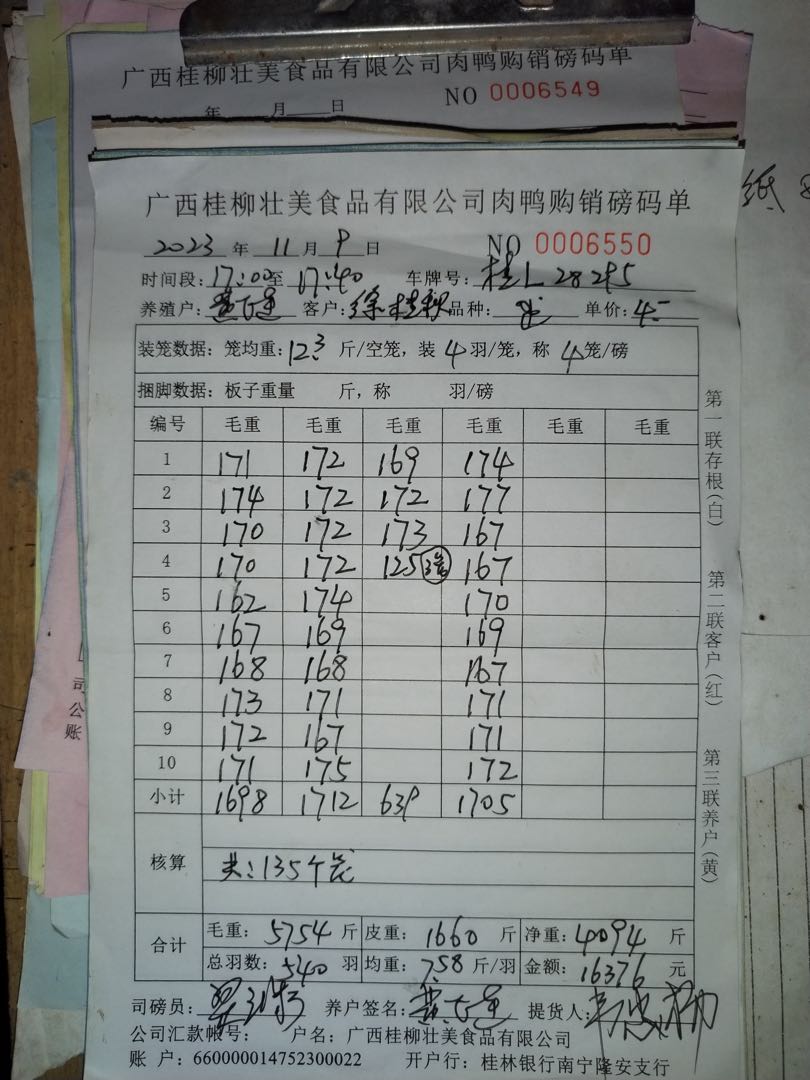 广西桂柳壮美食品有限公司肉鸭购销磅码单
年 月 日 NO 0006549
广西桂柳壮美食品有限公司肉鸭购销磅码单
2023 年 11 月 9 日 NO 0006550
时间段：17:00至 17:40 车牌号：桂L28295
养殖户： 客户：徐桂秋 品种： 单价：4-
装笼数据：笼均重：12.3 斤/空笼，装 4 羽/笼，称 4 笼/磅
捆脚数据：板子重量 斤，称 羽/磅
编号 毛重 毛重 毛重 毛重 毛重 毛重
1 171 172 169 174
2 174 172 172 177
3 170 172 173 167
4 170 172 125 3笼 167
5 162 174 170
6 167 169 169
7 168 168 167
8 173 171 171
9 172 167 171
10 171 175 172
小计 1698 1712 639 1705
核算
共：135个笼
合计
毛重：5754 斤 皮重：1660 斤 净重：4094 斤
总羽数：540 羽 均重：7.58 斤/羽 金额：16376 元
司磅员： 养户签名： 提货人：
公司汇款帐号： 户名：广西桂柳壮美食品有限公司
账 户：660000014752300022 开户行：桂林银行南宁隆安支行
第一联存根（白）
第二联客户（红）
第三联养户（黄）
司
公
账
纸